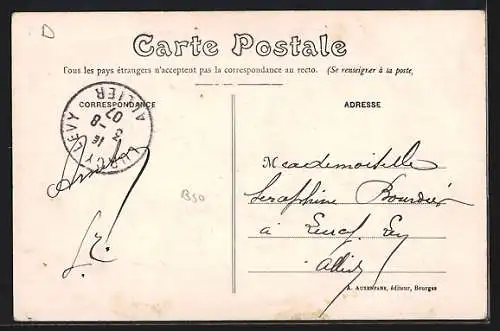 D
Carte Postale
Tous les pays étrangers n'acceptent pas la correspondance au recto. (Se renseigner à la poste)
CORRESPONDANCE
ADRESSE
LURCY LEVY
16
3 -8
07
ALLIER
Mademoiselle
Séraphine Bourdier
à Lurcy Levy
Allier
B50
A. AUXENFANS, éditeur, Bourges